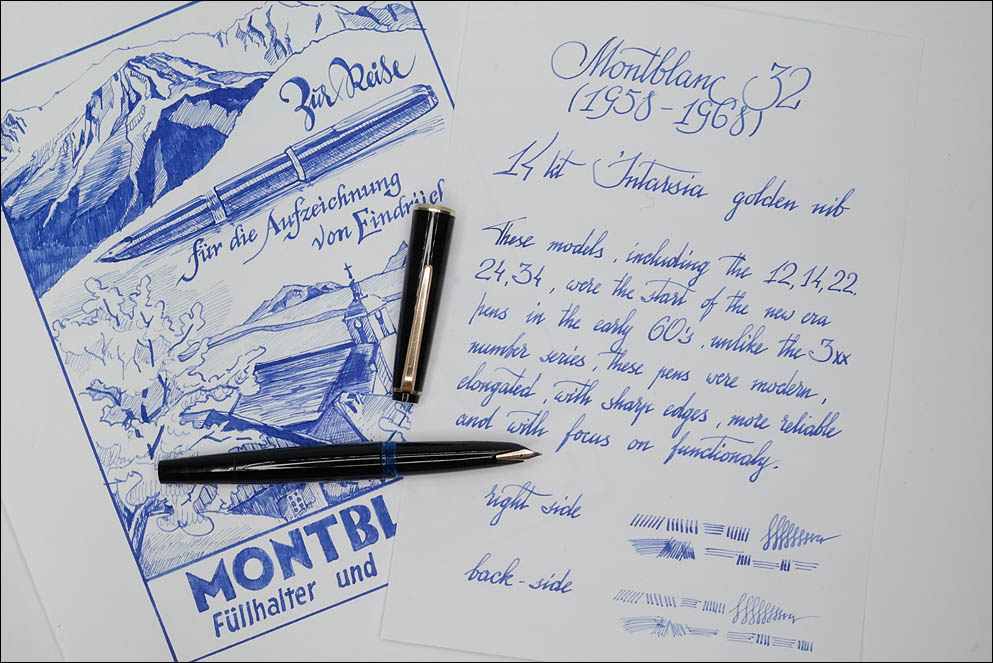 Zur Reise
für die Aufzeichnung
von Eindrück
MONTBL
Füllhalter und
Montblanc 32
(1958-1968)
14 kt Intarsia golden nib
These models, including the 12,14,22.
24,34, were the start of the new era
pens in the early 60's, unlike the 3xx
number series, these pens were modern,
elongated, with sharp edges, more reliable
and with focus on functionaly.
right side
back-side